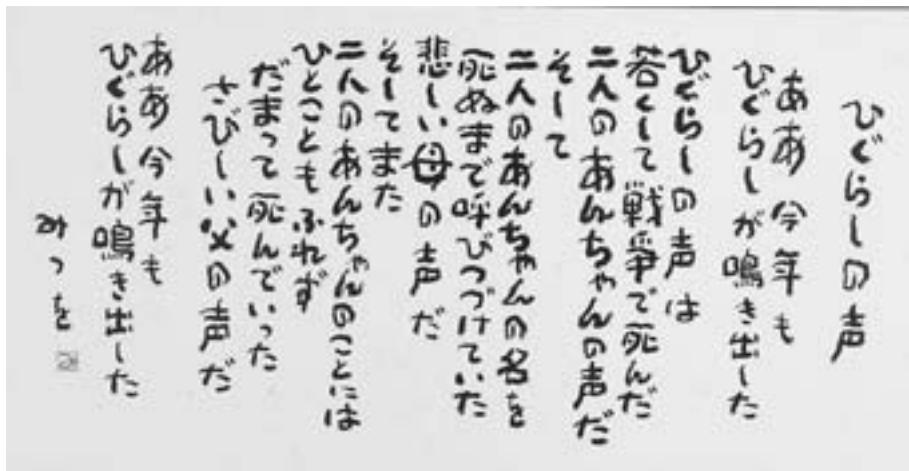 ひぐらしの声
ああ 今年も
ひぐらしが鳴き出した
ひぐらしの声は
若くして戦争で死んだ
二人のあんちゃんの声だ
そして
二人のあんちゃんの名を
死ぬまで呼びつづけていた
悲しい母の声だ
そしてまた
二人のあんちゃんのことには
ひとこともふれず
だまって死んでいった
さびしい父の声だ
ああ 今年も
ひぐらしが鳴き出した
みつを